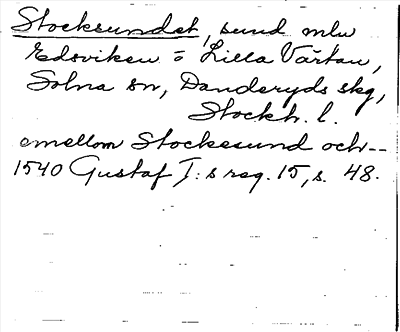 Stocksundet, sund mlu
Edsviken o Lilla Värtan,
Solna sn, Danderyds skg,
Stockh. l.
emellom Stockesund och--
1540 Gustaf I:s reg. 15, s. 48.